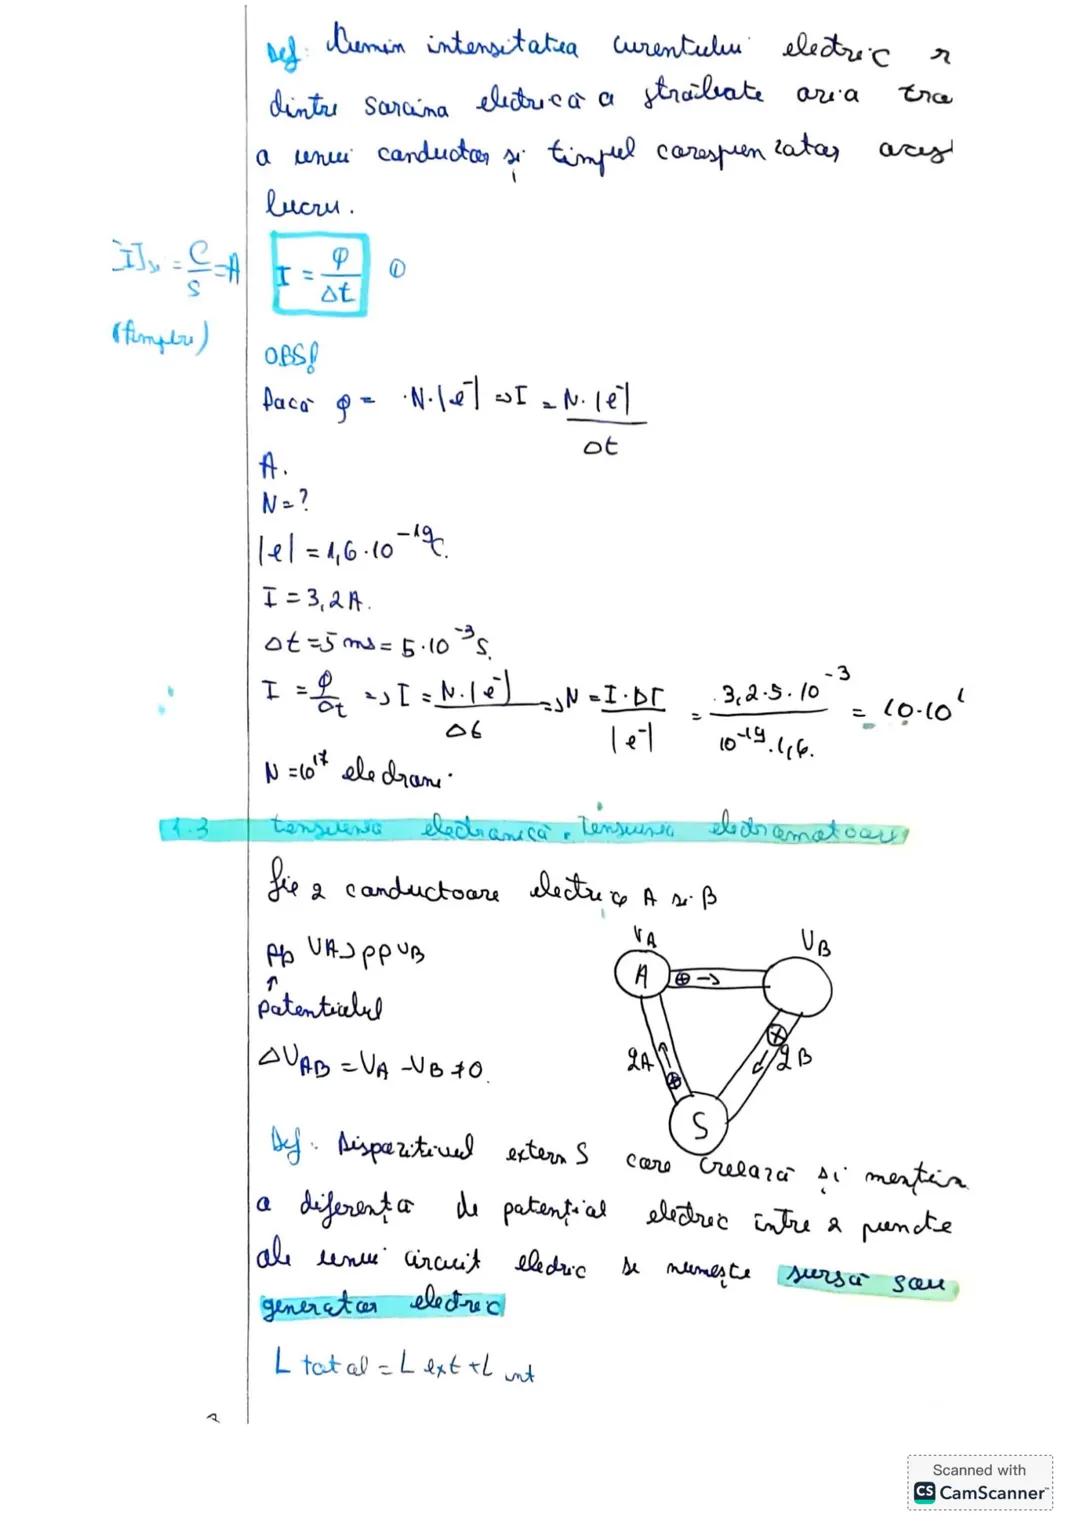 Def: Numim intensitatea curentului electric r
dintre sarcina electrică a străbate aria tra
a unui conductor și timpul corespunzator acest
lucru.
[I]s = C/s = A
(Amperi)
I = φ/Δt ①
OBS!
Dacă φ = N·|e⁻| => I = N·|e⁻|/Δt
A.
N=?
|e| = 1,6·10⁻¹⁹C.
I = 3,2A.
Δt = 5 ms = 5·10⁻³s.
I = φ/Δt => I = N·|e⁻|/Δt => N = I·Δt/|e⁻| = 3,2·5·10⁻³/10⁻¹⁹·1,6. = 10·10
N = 10¹⁷ electroni.
1.3 tensiunea electronică. Tensiunea electromotoare
fie 2 conductoare electrice A și B
pp VA > pp VB
↑
Potentialul
VA
VB
A
⊕→
ΔVAB = VA - VB ≠ 0.
qA
qB
S
Def: Dispozitivul extern S care creează și menține
a diferența de potențial electric între 2 puncte
ale unui circuit electric se numește sursă sau
generator electric
L total = L ext + L int
Scanned with
CS CamScanner